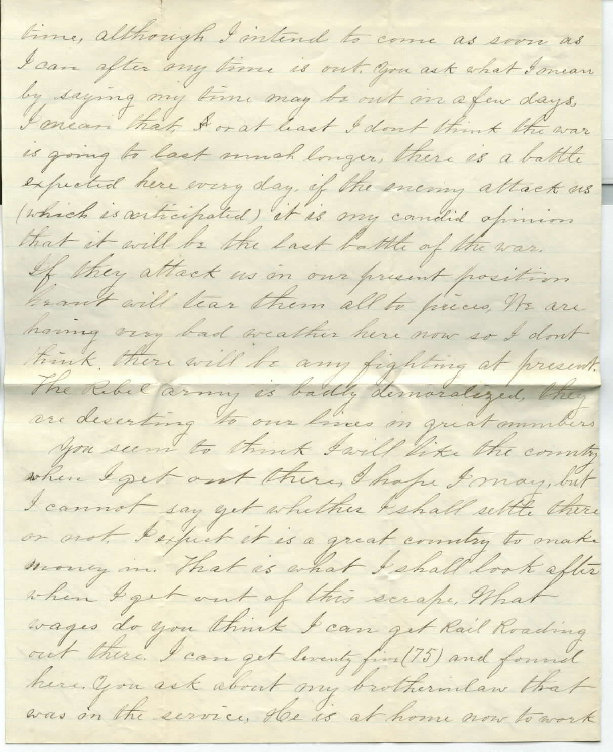 time, although I intend to come as soon as
I can after my time is out. You ask what I mean
by saying my time may be out in a few days,
I mean that, or at least I dont think the war
is going to last much longer, there is a battle
expected here every day. if the enemy attack us
(which is anticipated) it is my candid opinion
that it will be the last battle of the war.
If they attack us in our present position
Grant will tear them all to pieces, We are
having very bad weather here now so I dont
think there will be any fighting at present.
The Rebel army is badly demoralized, they
are deserting to our lines in great numbers
You seem to think I will like the country
when I get out there, I hope I may, but
I cannot say yet whether I shall settle there
or not. I expect it is a great country to make
money in. That is what I shall look after
when I get out of this scrape. What
wages do you think I can get Rail Roading
out there. I can get Seventy five (75) and found
here. You ask about my brotherinlaw that
was in the service. He is at home now to work